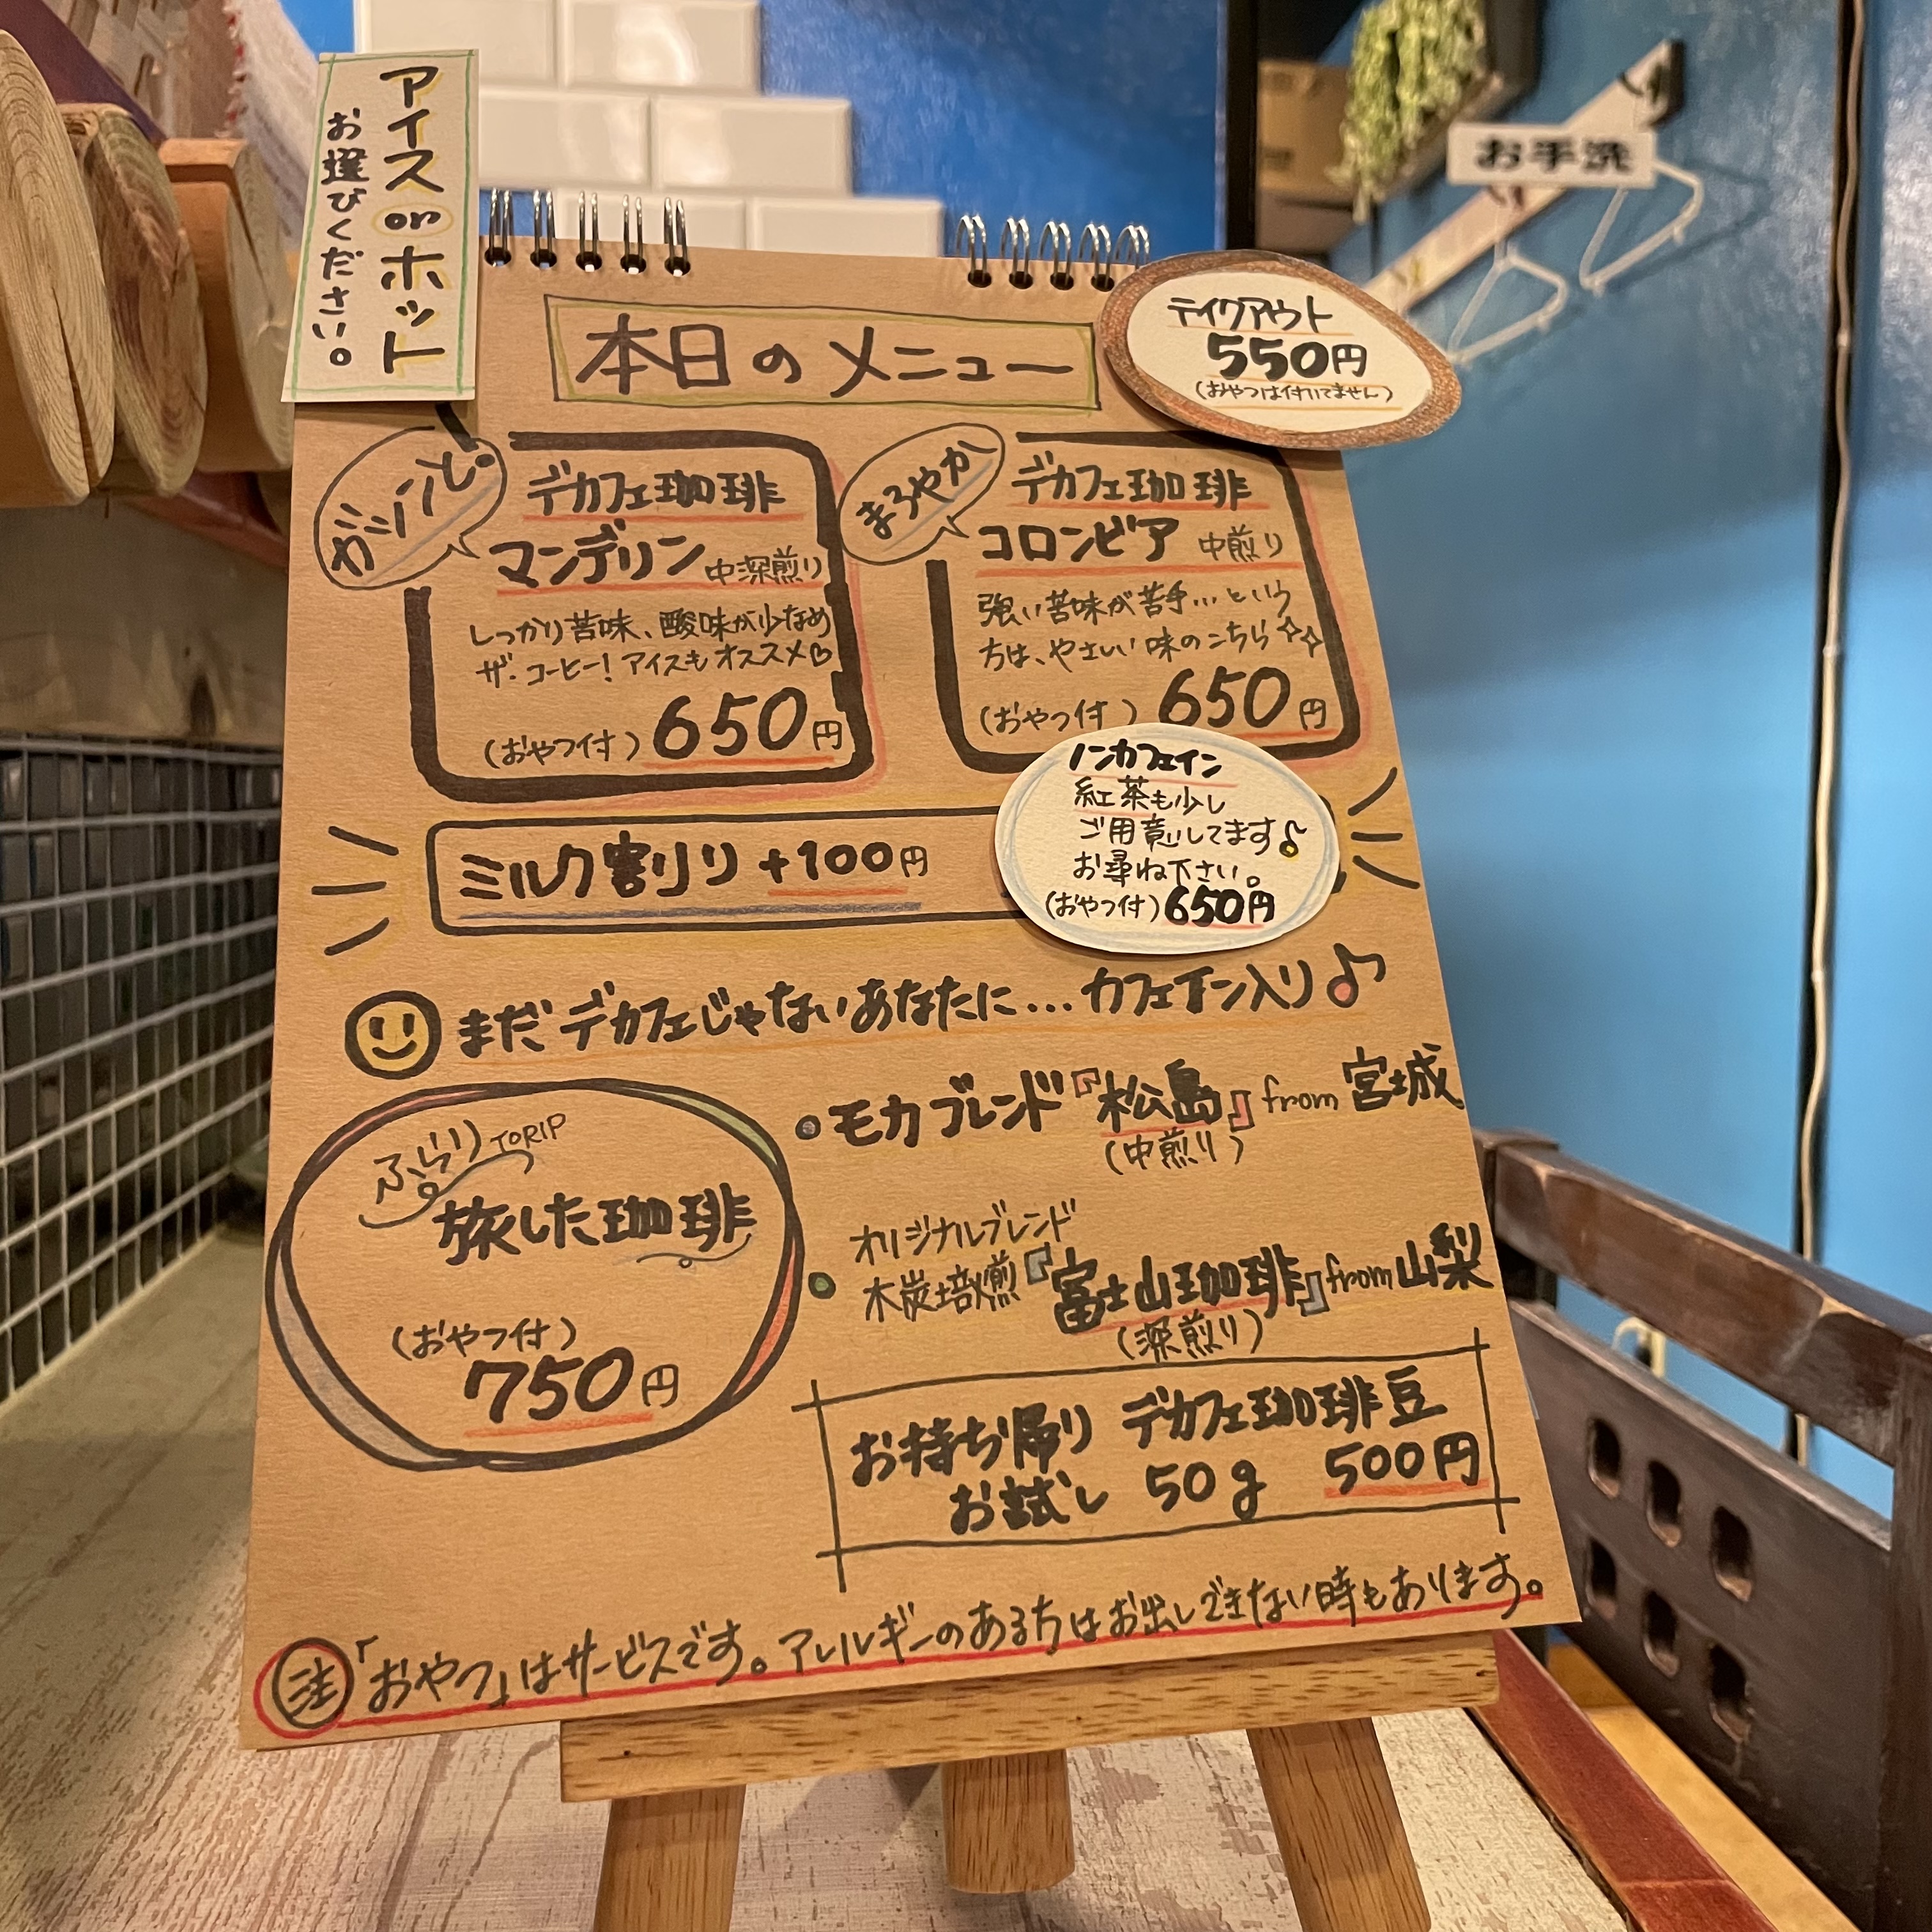 アイス or ホット
お選びください。
お手洗
本日のメニュー
テイクアウト
550円
(おやつは付いてません)
ガツンと。
デカフェ珈琲
マンデリン 中深煎り
しっかり苦味、酸味が少なめ
ザ・コーヒー! アイスもオススメ♡
(おやつ付) 650円
まろやか
デカフェ珈琲
コロンビア 中煎り
強い苦味が苦手…という
方は、やさしい味のこちら
(おやつ付) 650円
ミルク割り +100円
ノンカフェイン
紅茶も少し
ご用意してます♪
お尋ね下さい。
(おやつ付) 650円
まだデカフェじゃないあなたに…カフェイン入り♪
ふらり TORIP
旅した珈琲
(おやつ付)
750円
・モカブレンド『松島』from 宮城
(中煎り)
オリジナルブレンド
・木炭焙煎『富士山珈琲』from 山梨
(深煎り)
お持ち帰り デカフェ珈琲豆
お試し 50g 500円
注「おやつ」はサービスです。アレルギーのある方はお出しできない時もあります。